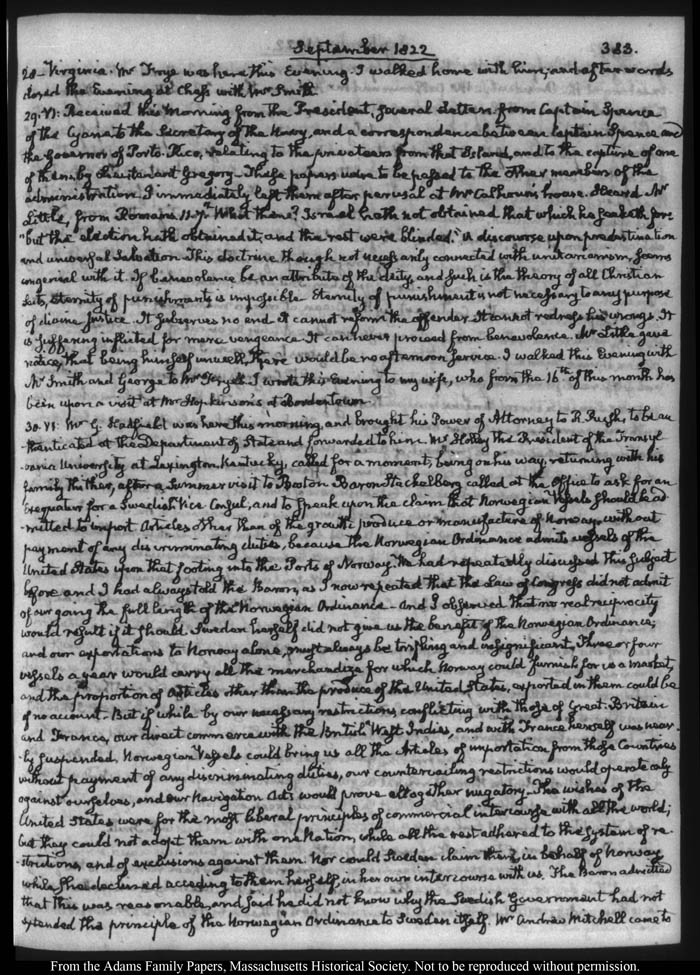 September 1822
383.
28— Virginia. Mr Frye was here this Evening. I walked home with him, and afterwards
closed the Evening at Chess with Mr Smith.
29. VI: Received this Morning from the President, several letters from Captain Spence
of the Cyane to the Secretary of the Navy, and a correspondence between Captain Spence and
the Governor of Porto-Rico, relating to the privateers from that Island, and to the capture of one
of them by Lieutenant Gregory. These papers were to be passed to the other members of the
administration. I immediately left them after perusal at Mr Calhoun's house. Heard Mr
Little, from Romans 11. 7. What then? Israel hath not obtained that which he seeketh for;
"but the election hath obtained it, and the rest were blinded." A discourse upon predestination
and universal Salvation. This doctrine though not necessarily connected with unitarianism, seems
congenial with it. If benevolence be an attribute of the deity, and such is the theory of all Christian
Sects, eternity of punishments is impossible. Eternity of punishment is not necessary to any purpose
of divine justice. It subserves no end. It cannot reform the offender. It cannot redress his wrongs. It
is suffering inflicted for mere vengeance. It can never proceed from benevolence. Mr Little gave
notice, that being himself unwell, there would be no afternoon service. I walked this Evening with
Mr Smith and George to Mr Frye's. I wrote this Evening to my wife, who from the 16th of this month has
been upon a visit at Mr Hopkinson's at Bordentown.
30. VI. Mr G. Hatfield was here this morning, and brought his Power of Attorney to R. Rush, to be au-
thenticated at the Department of State and forwarded to him. Mr Holley the President of the Transyl-
vania University at Lexington, Kentucky, called for a moment, being on his way, returning with his
family thither, after a Summer visit to Boston. Baron Stackelberg called at the Office to ask for an
Exequatur for a Swedish Vice Consul, and to speak upon the claim that Norwegian Vessels should be ad-
mitted to import Articles other than of the growth produce or manufacture of Norway, without
payment of any discriminating duties, because the Norwegian Ordinance admits vessels of the
United States upon that footing into the Ports of Norway. We had repeatedly discussed this subject
before and I had always told the Baron, as I now repeated that the Law of Congress did not admit
of our going the full length of the Norwegian Ordinance. And I observed that no real reciprocity
would result if it should. Sweden herself did not give us the benefit of the Norwegian Ordinance;
and our exportations to Norway alone, must always be trifling and insignificant. Three or four
vessels a year would carry all the merchandize for which Norway could furnish for us a market,
and the proportion of articles other than the produce of the United States, exported in them could be
of no account. But if while by our necessary restrictions conflicting with those of Great-Britain
and France, our direct commerce with the British West Indies, and with France herself was near-
ly suspended, Norwegian Vessels could bring us all the Articles of importation from those Countries
without payment of any discriminating duties, our countervailing restrictions would operate only
against ourselves, and our Navigation Acts would prove altogether nugatory. The wishes of the
United States were for the most liberal principles of commercial intercourse with all the world;
but they could not adopt them with one Nation, while all the rest adhered to the system of re-
strictions, and of exclusions against them. Nor could Sweden claim them, in behalf of Norway
while she declined acceding to them herself, in her own intercourse with us. The Baron admitted
that this was reasonable, and said he did not know why the Swedish Government had not
extended the principle of the Norwegian Ordinance to Sweden itself. Mr Andrew Mitchell came to
From the Adams Family Papers, Massachusetts Historical Society. Not to be reproduced without permission.